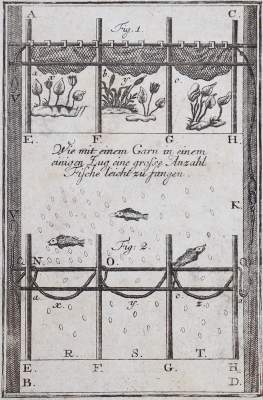 A. C.
Fig. 1.
a x b y c z
E. F. G. H.
Wie mit einem Garn in einem
einigen Zug eine große Anzahl
Fische leicht zu fangen.
K.
Fig: 2.
N. O.
a x. y. c z.
R. S. T.
E. F. G. H.
B. D.